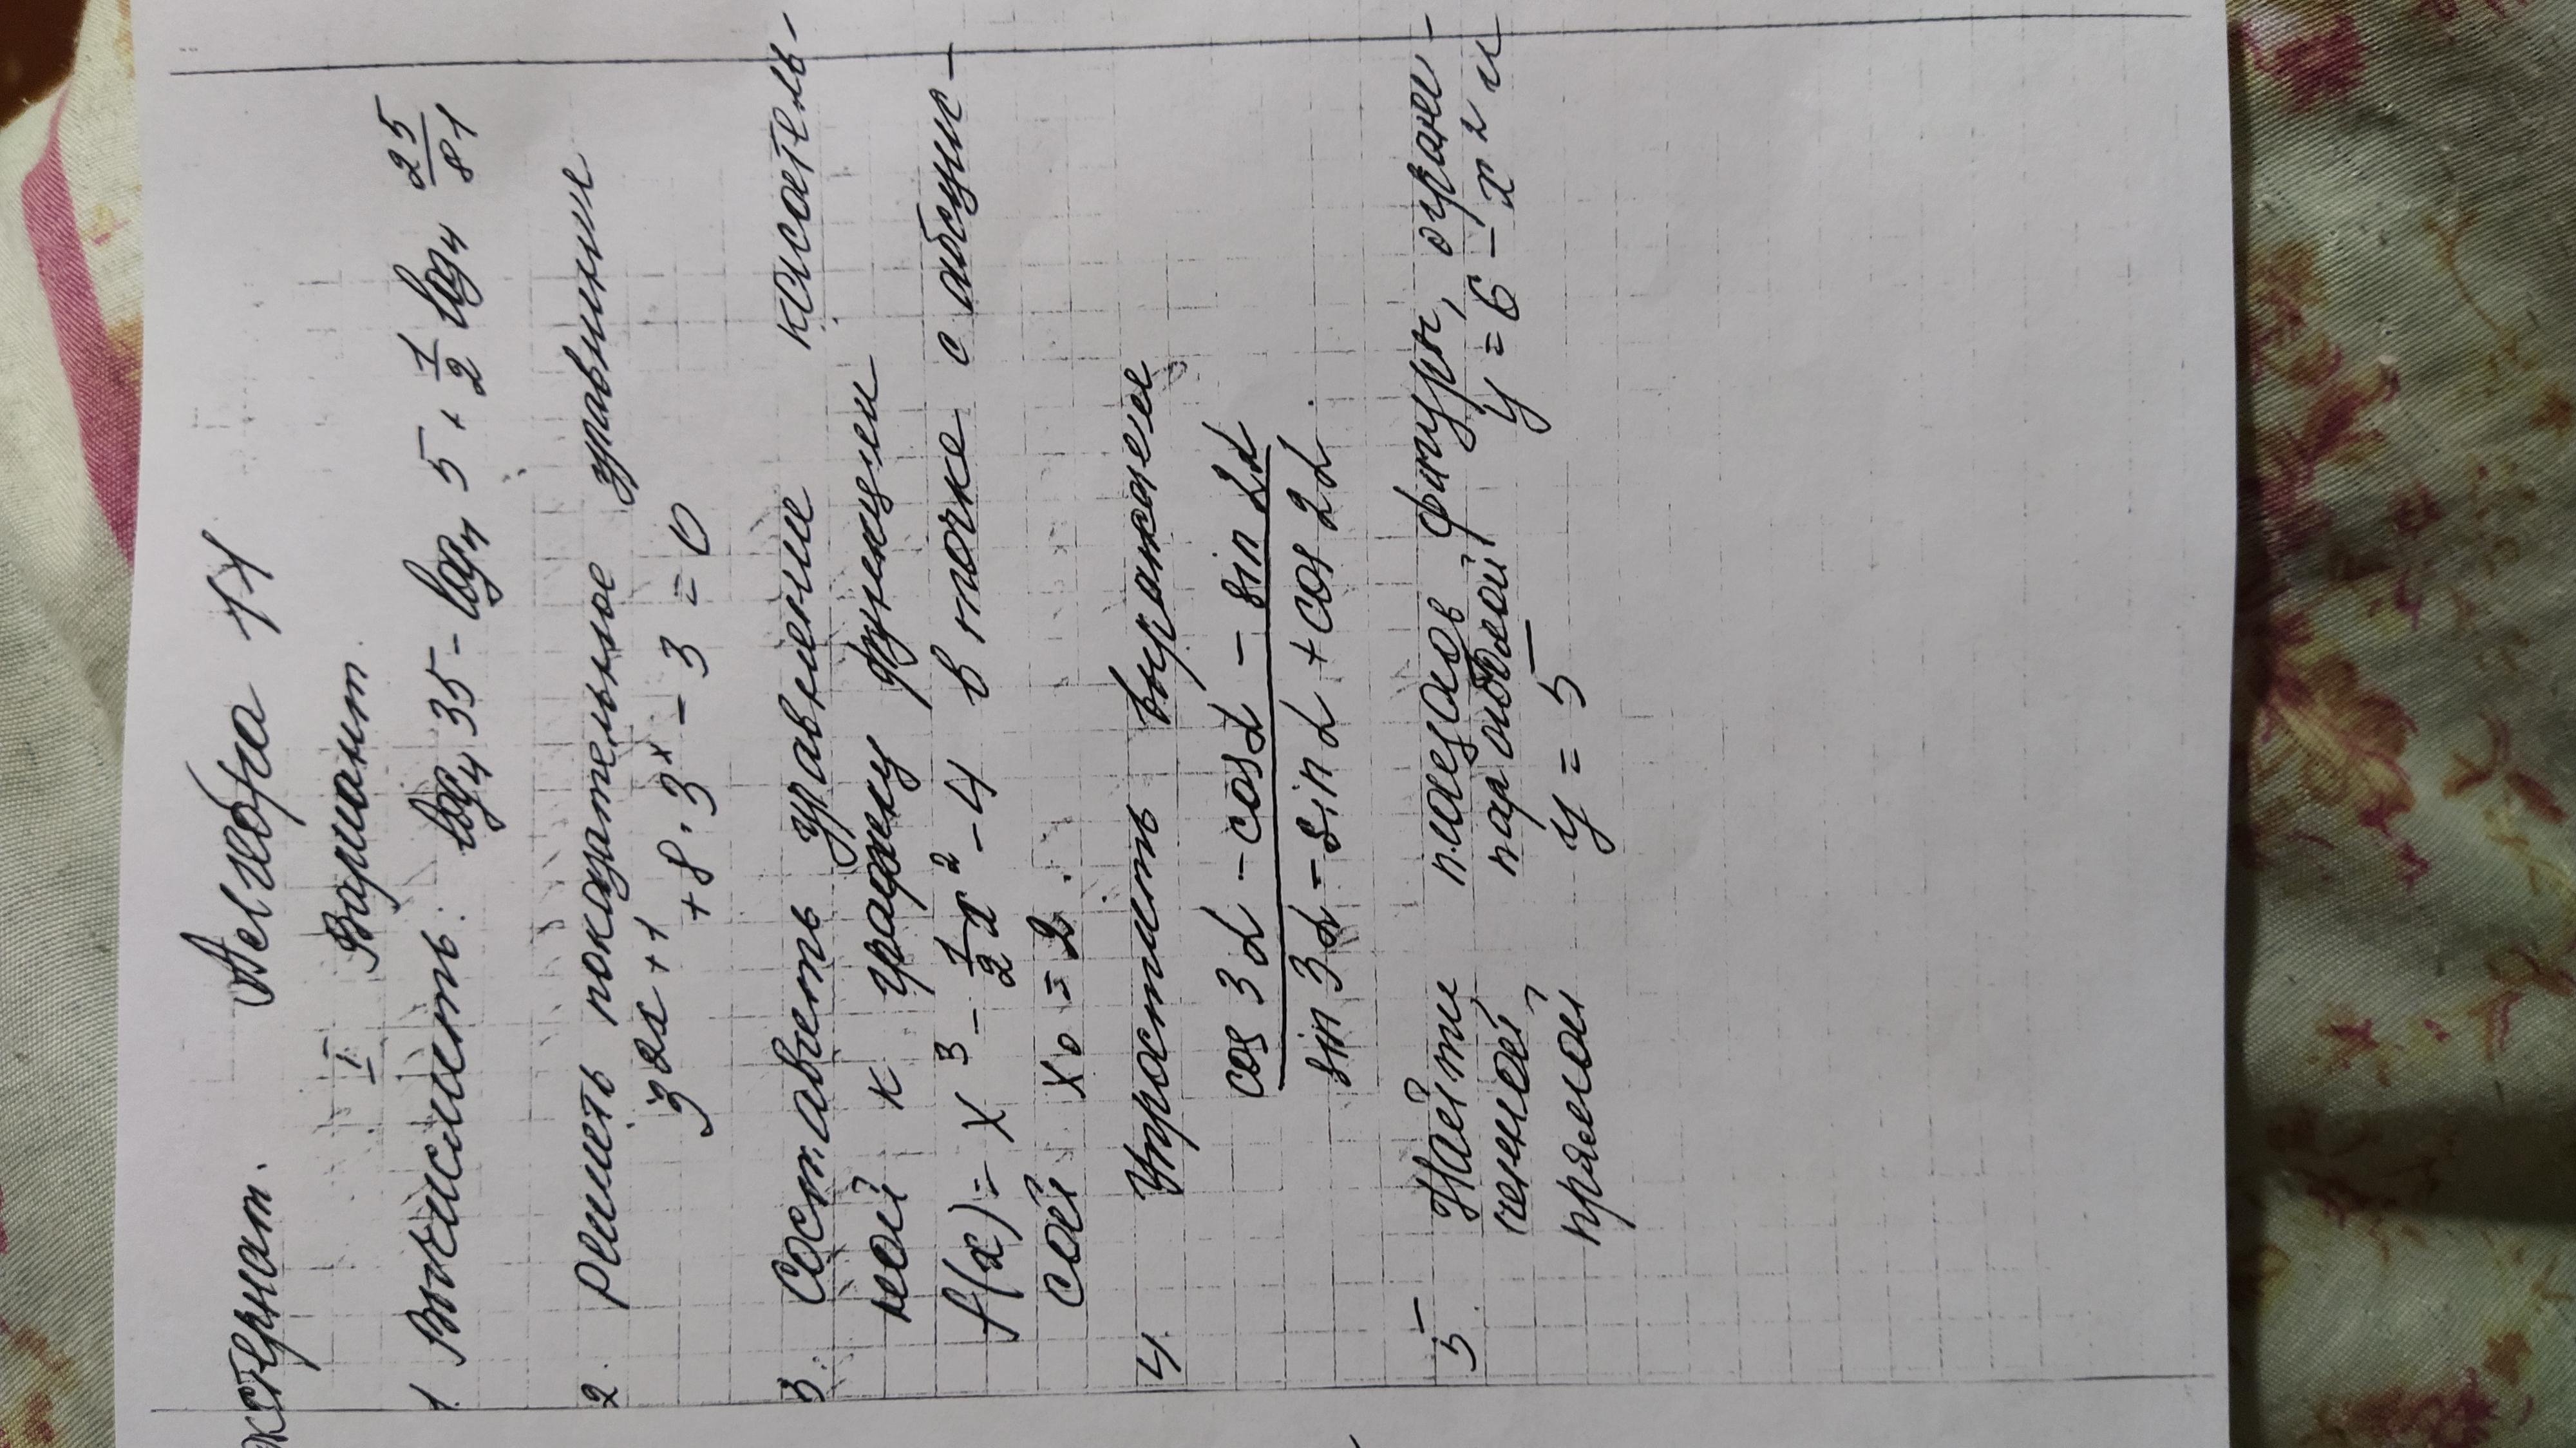 Экстернат. Алгебра 11
I Вариант.
1. Вычислить: log₄ 35 - log₄ 5 + 1/2 log₄ 25/81
2. Решить показательное уравнение
3^(2x+1) + 8 · 3^x - 3 = 0
3. Составить уравнение касатель-
ной к графику функции
f(x) = x³ - 1/2 x² - 4 в точке с абсцис-
сой x₀ = 2.
4. Упростить выражение
(cos 3α - cos α - sin 2α)/(sin 3α - sin α + cos 2α).
5. Найти площадь фигуры, ограни-
ченной параболой y = 6 - x² и
прямой y = 5